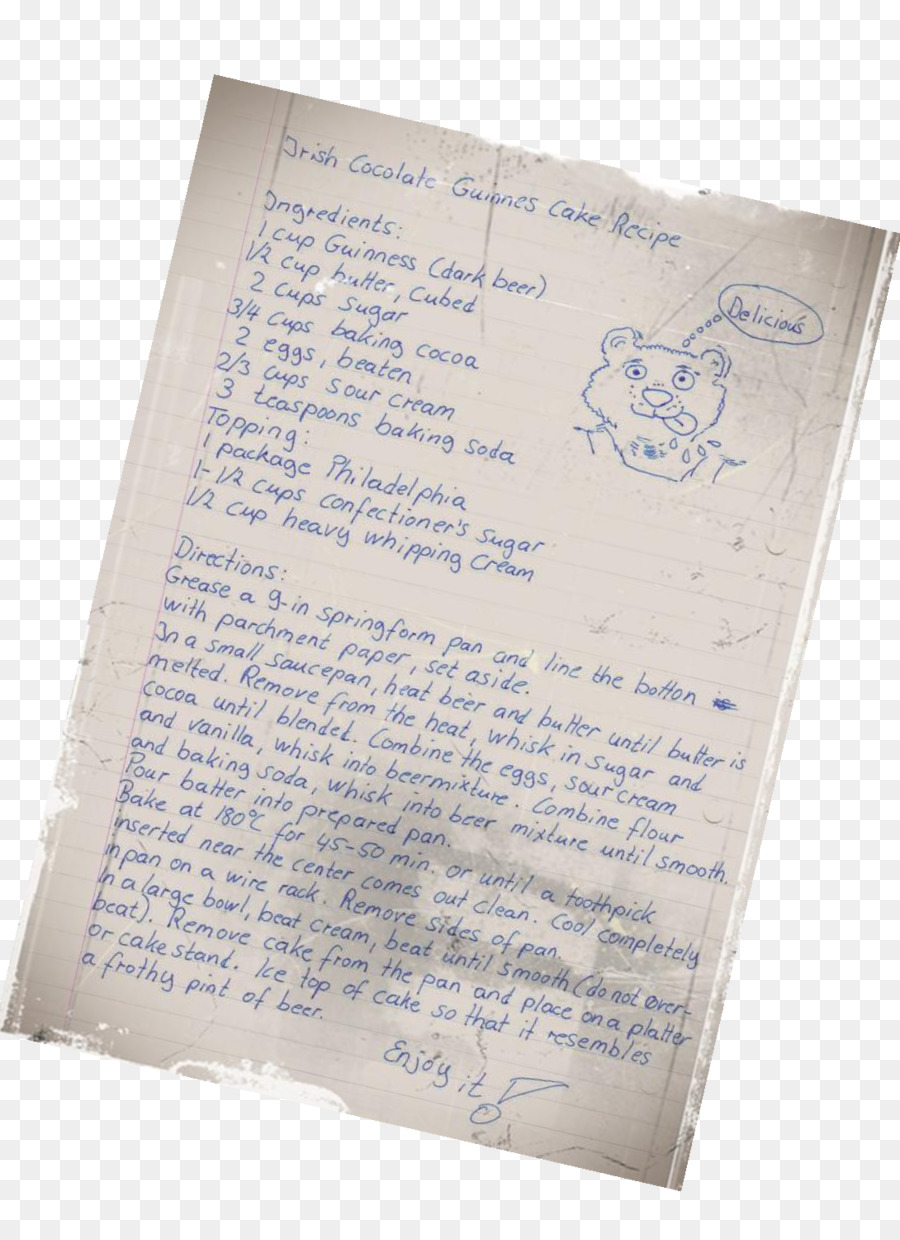 Irish Cocolate Guinnes Cake Recipe
Ingredients:
1 cup Guinness (dark beer)
1/2 cup butter, cubed
2 cups sugar
3/4 cups baking cocoa
2 eggs, beaten
2/3 cups sour cream
3 teaspoons baking soda
Topping:
1 package Philadelphia
1-1/2 cups confectioner's sugar
1/2 cup heavy whipping cream
Delicious
Directions:
Grease a 9-in springform pan and line the botton
with parchment paper, set aside.
In a small saucepan, heat beer and butter until butter is
melted. Remove from the heat, whisk in sugar and
cocoa until blended. Combine the eggs, sour cream
and vanilla, whisk into beermixture. Combine flour
and baking soda, whisk into beer mixture until smooth.
Pour batter into prepared pan.
Bake at 180°C for 45-50 min. or until a toothpick
inserted near the center comes out clean. Cool completely
in pan on a wire rack. Remove sides of pan.
In a large bowl, beat cream, beat until smooth (do not over-
beat). Remove cake from the pan and place on a platter
or cake stand. Ice top of cake so that it resembles
a frothy pint of beer.
Enjoy it!